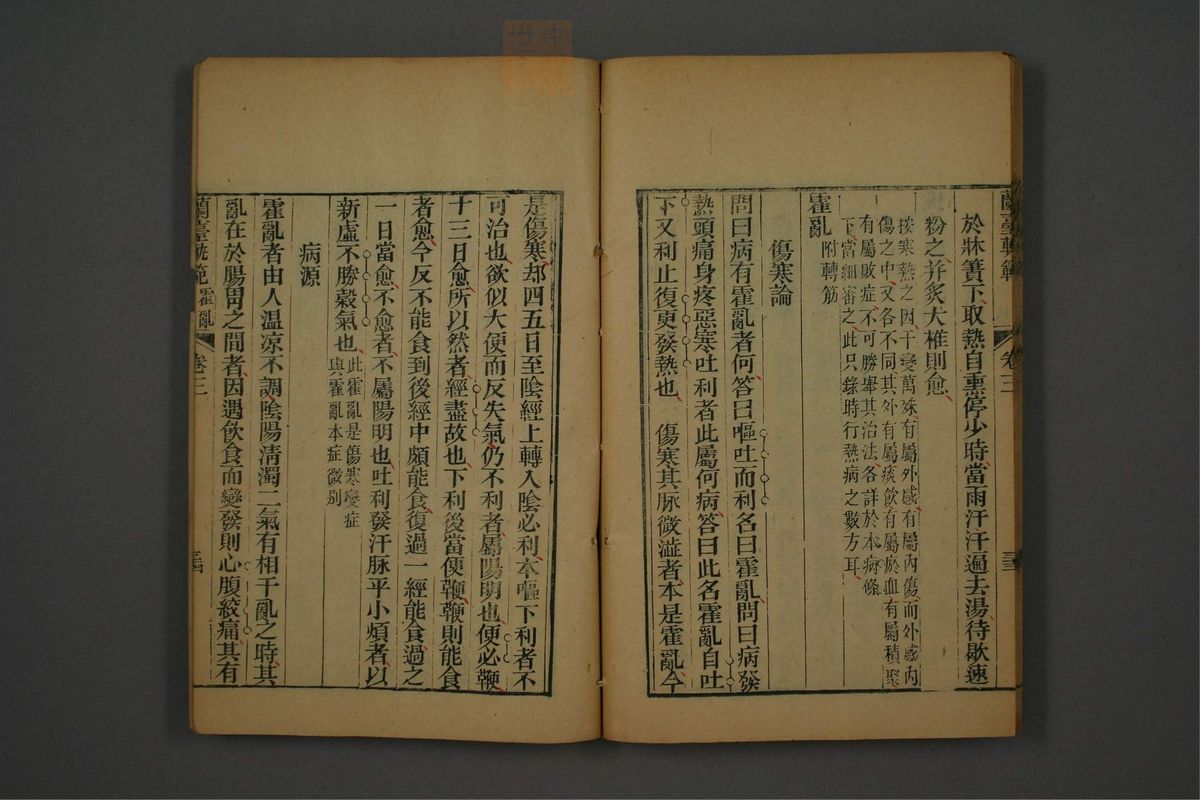 蘭臺軌範
卷三
三三
於牀簀下取熱自熏停少時當雨汗汗過去湯待歇速
粉之并炙大椎則愈
按寒熱之因千變萬殊有屬外感有屬內傷而外感內
傷之中又各不同其外有屬痰飲有屬瘀血有屬積聚
有屬敗症不可勝舉其治法各詳於本病條
下當細審之此只錄時行熱病之數方耳
霍亂附轉筋
傷寒論
問曰病有霍亂者何答曰嘔吐而利名曰霍亂問曰病發
熱頭痛身疼惡寒吐利者此屬何病答曰此名霍亂自吐
下又利止復更發熱也 傷寒其脉微澁者本是霍亂今
是傷寒却四五日至陰經上轉入陰必利本嘔下利者不
可治也欲似大便而反失氣仍不利者屬陽明也便必鞭
十三日愈所以然者經盡故也下利後當便鞭鞭則能食
者愈今反不能食到後經中頗能食復過一經能食過之
一日當愈不愈者不屬陽明也吐利發汗脉平小煩者以
新虛不勝穀氣也此霍亂是傷寒變症
與霍亂本症微别
病源
霍亂者由人温凉不調陰陽清濁二氣有相干亂之時其
亂在於腸胃之間者因遇飲食而變發則心腹絞痛其有
蘭臺軌範
霍亂
卷三
三四